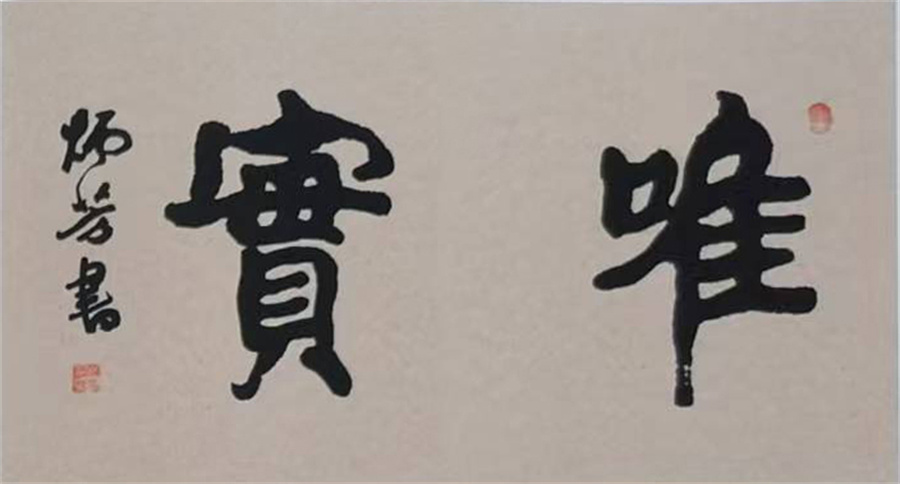 唯實
炳芳書